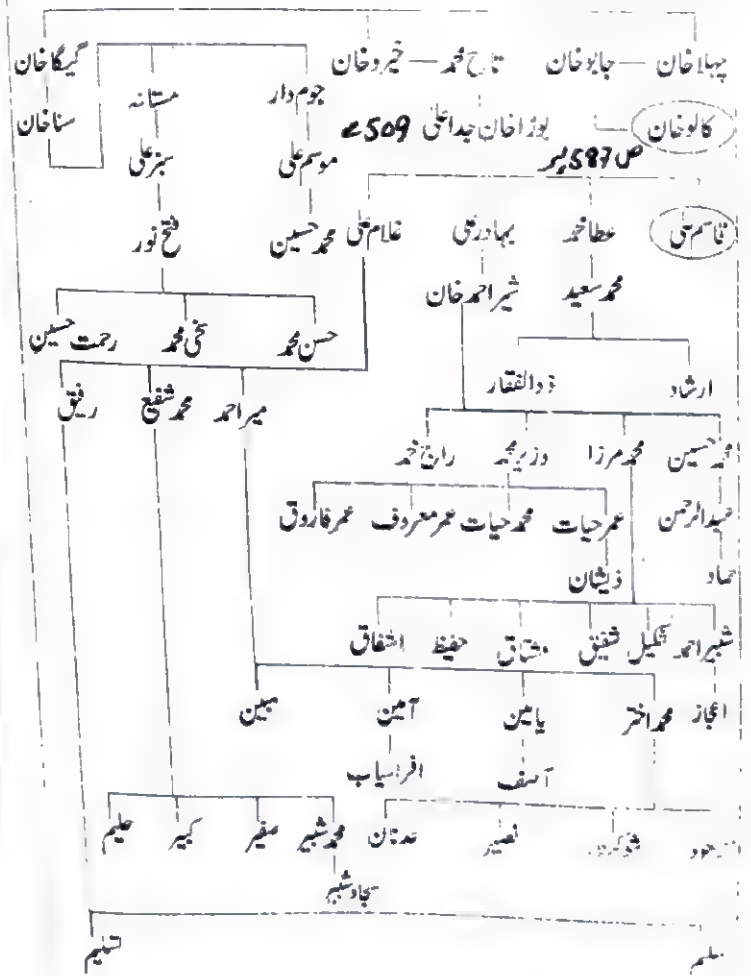 پہلا خان — جابو خان تاج محمد — خیرو خان گیگا خان
کالو خان بوڑا خان جد اعلیٰ 509ء جوم دار مستانہ سنا خان
ص 587 پر موسم علی سبز علی
قاسم علی عطا محمد بہادر علی غلام علی محمد حسین فتح نور
محمد سعید شیر احمد خان
حسن محمد سخی محمد رحمت حسین
ارشاد ذوالفقار
میر احمد محمد شفیع رفیق
محمد حسین محمد مرزا وزیر محمد
عبدالرحمن عمر حیات محمد حیات عمر معروف عمر فاروق
حماد ذیشان
شبیر احمد شکیل شفیق مشتاق حفیظ اشفاق
اعجاز محمد اختر یامین آمین مبین
آصف افراسیاب
نصیر عدنان محمد شبیر صغیر کبیر حلیم
سجاد شبیر
تسلیم